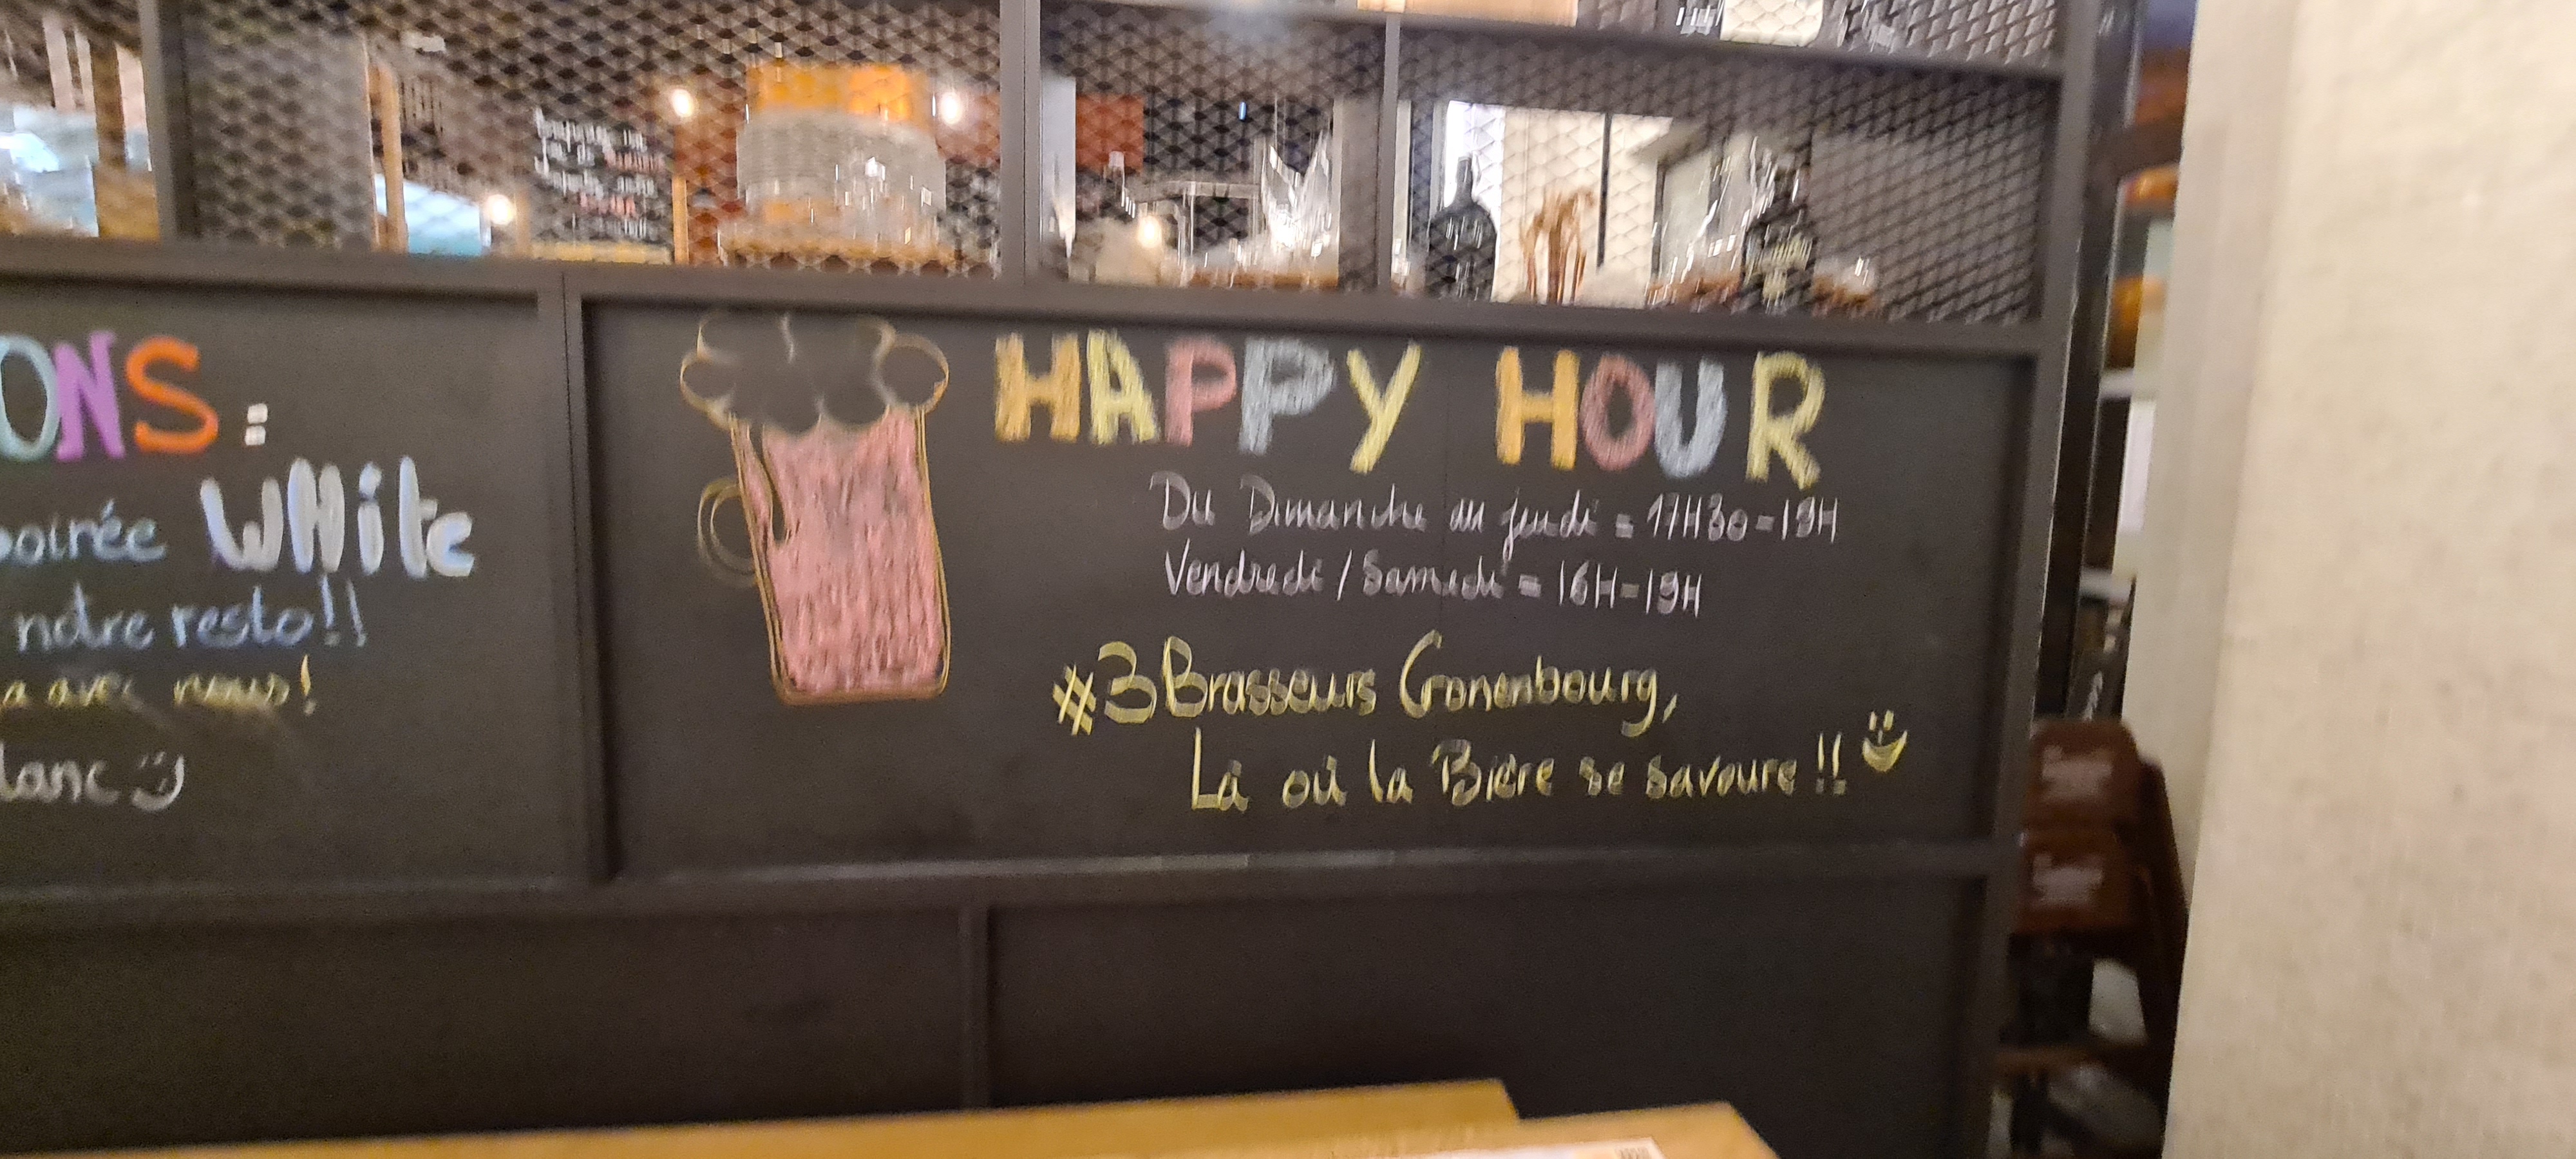 ONS :
soirée WHite
notre resto!!
avec nous!
lanc
HAPPY HOUR
Du Dimanche au jeudi = 17H30-19H
Vendredi / Samedi = 16H-19H
#3Brasseurs Cronenbourg,
Là où la Bière se savoure !!